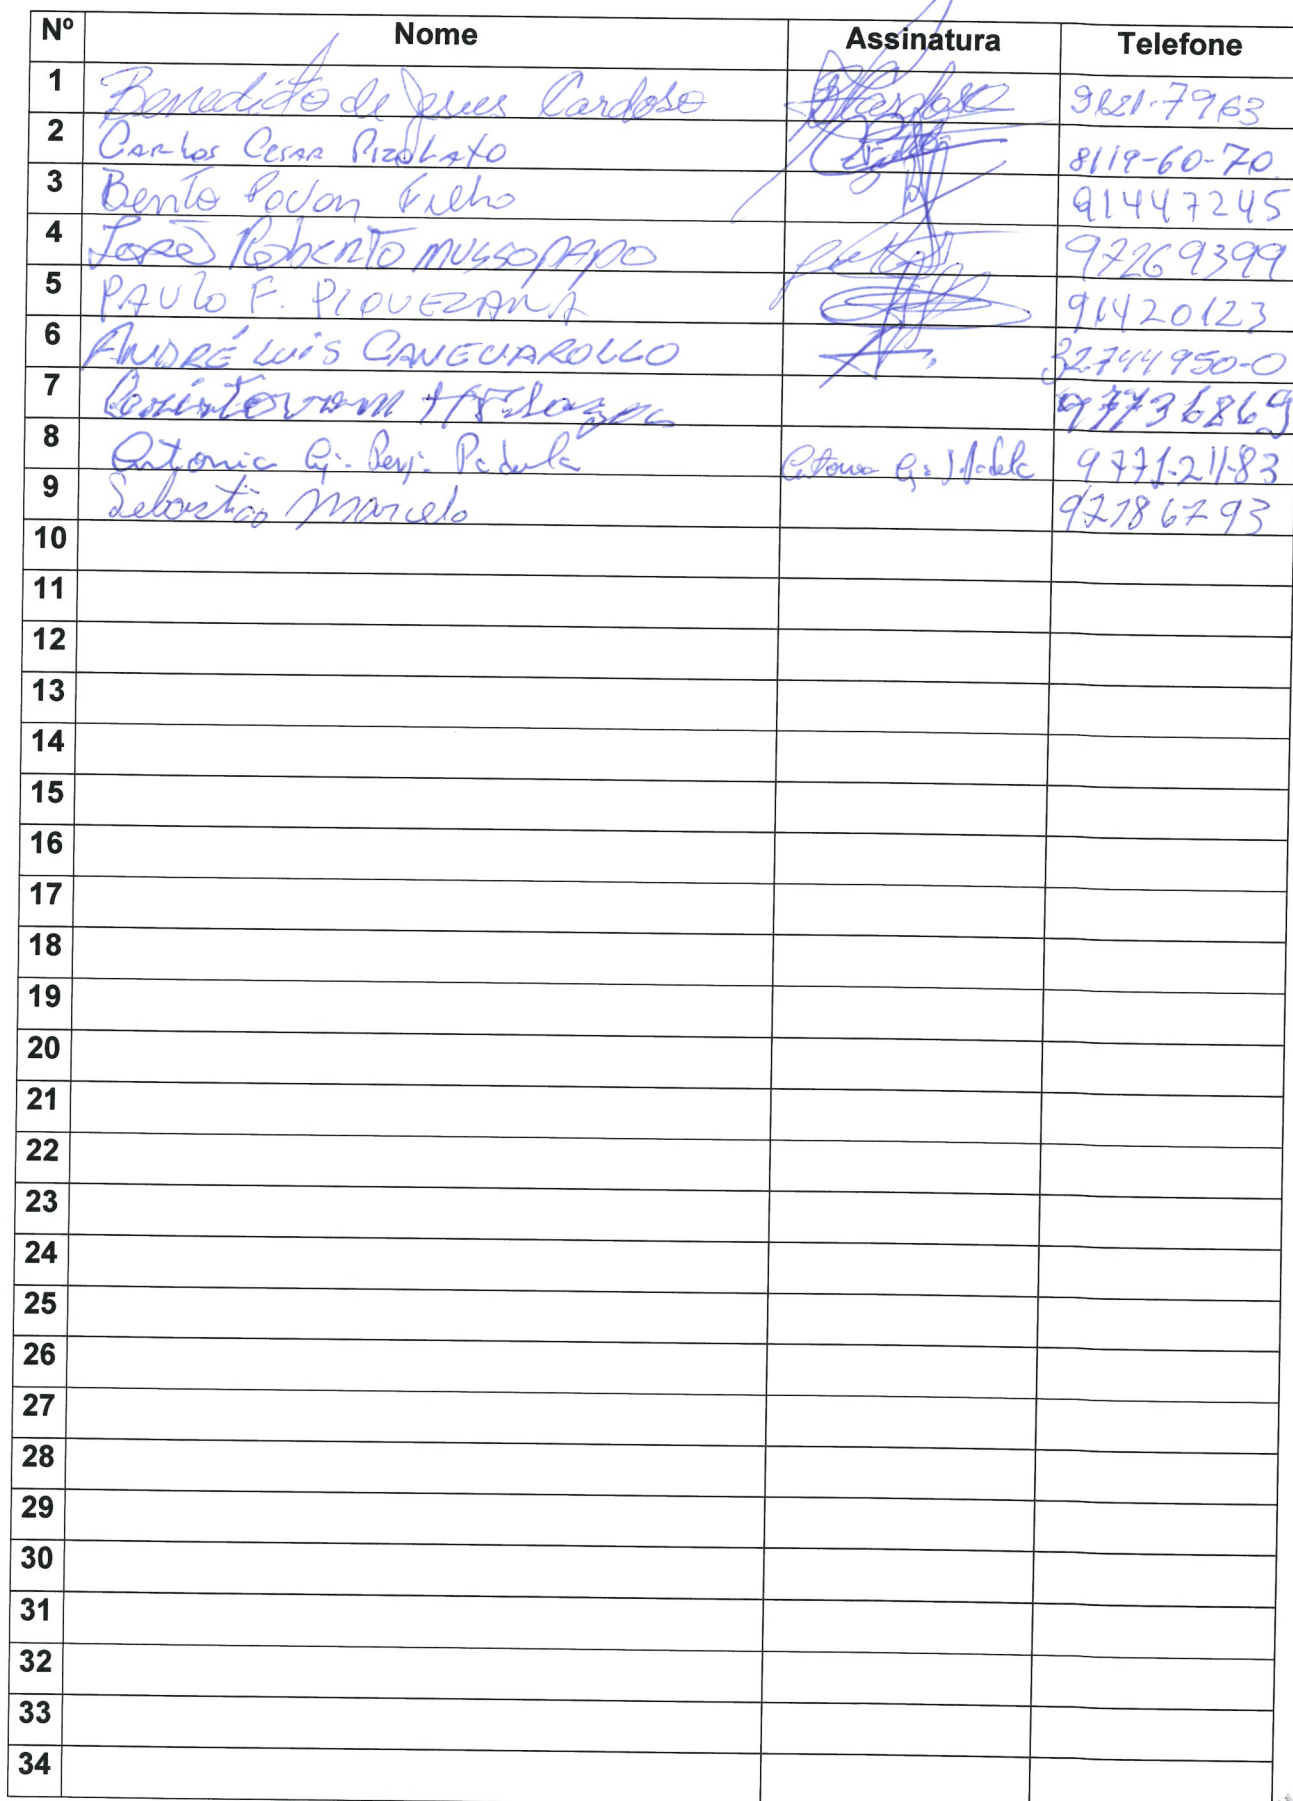 Nº Nome Assinatura Telefone
1 Benedito de Jesus Cardoso Cardoso 9621-7963
2 Carlos Cesar Pizolato 8119-60-70
3 Bento Pavan Filho 91447245
4 José Roberto MUSSOPAPO 97269399
5 PAULO F. PIOVEZANA 91420123
6 ANDRÉ LUÍS CANEVAROLLO 32744950-0
7 97736869
8 Antonia Padula 9771-21183
9 Sebastião Marcelo 97186793
10
11
12
13
14
15
16
17
18
19
20
21
22
23
24
25
26
27
28
29
30
31
32
33
34